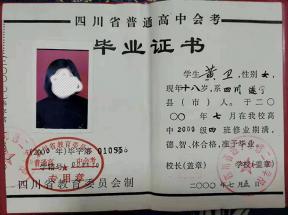 四川省普通高中会考
毕业证书
学生 黄卫 ,性别 女 ,
现年十八岁,系 四川 遂宁
县(市)人。于二○
○○年七月在我校高
中2000级 四 班修业期满,
德、智、体合格,准予毕业。
校长(盖章) 学校(盖章)
二○○○年七月
(2000年)毕字第010556
四川省教育委员会
普通高 中会考
专用章
四川省教育委员会制